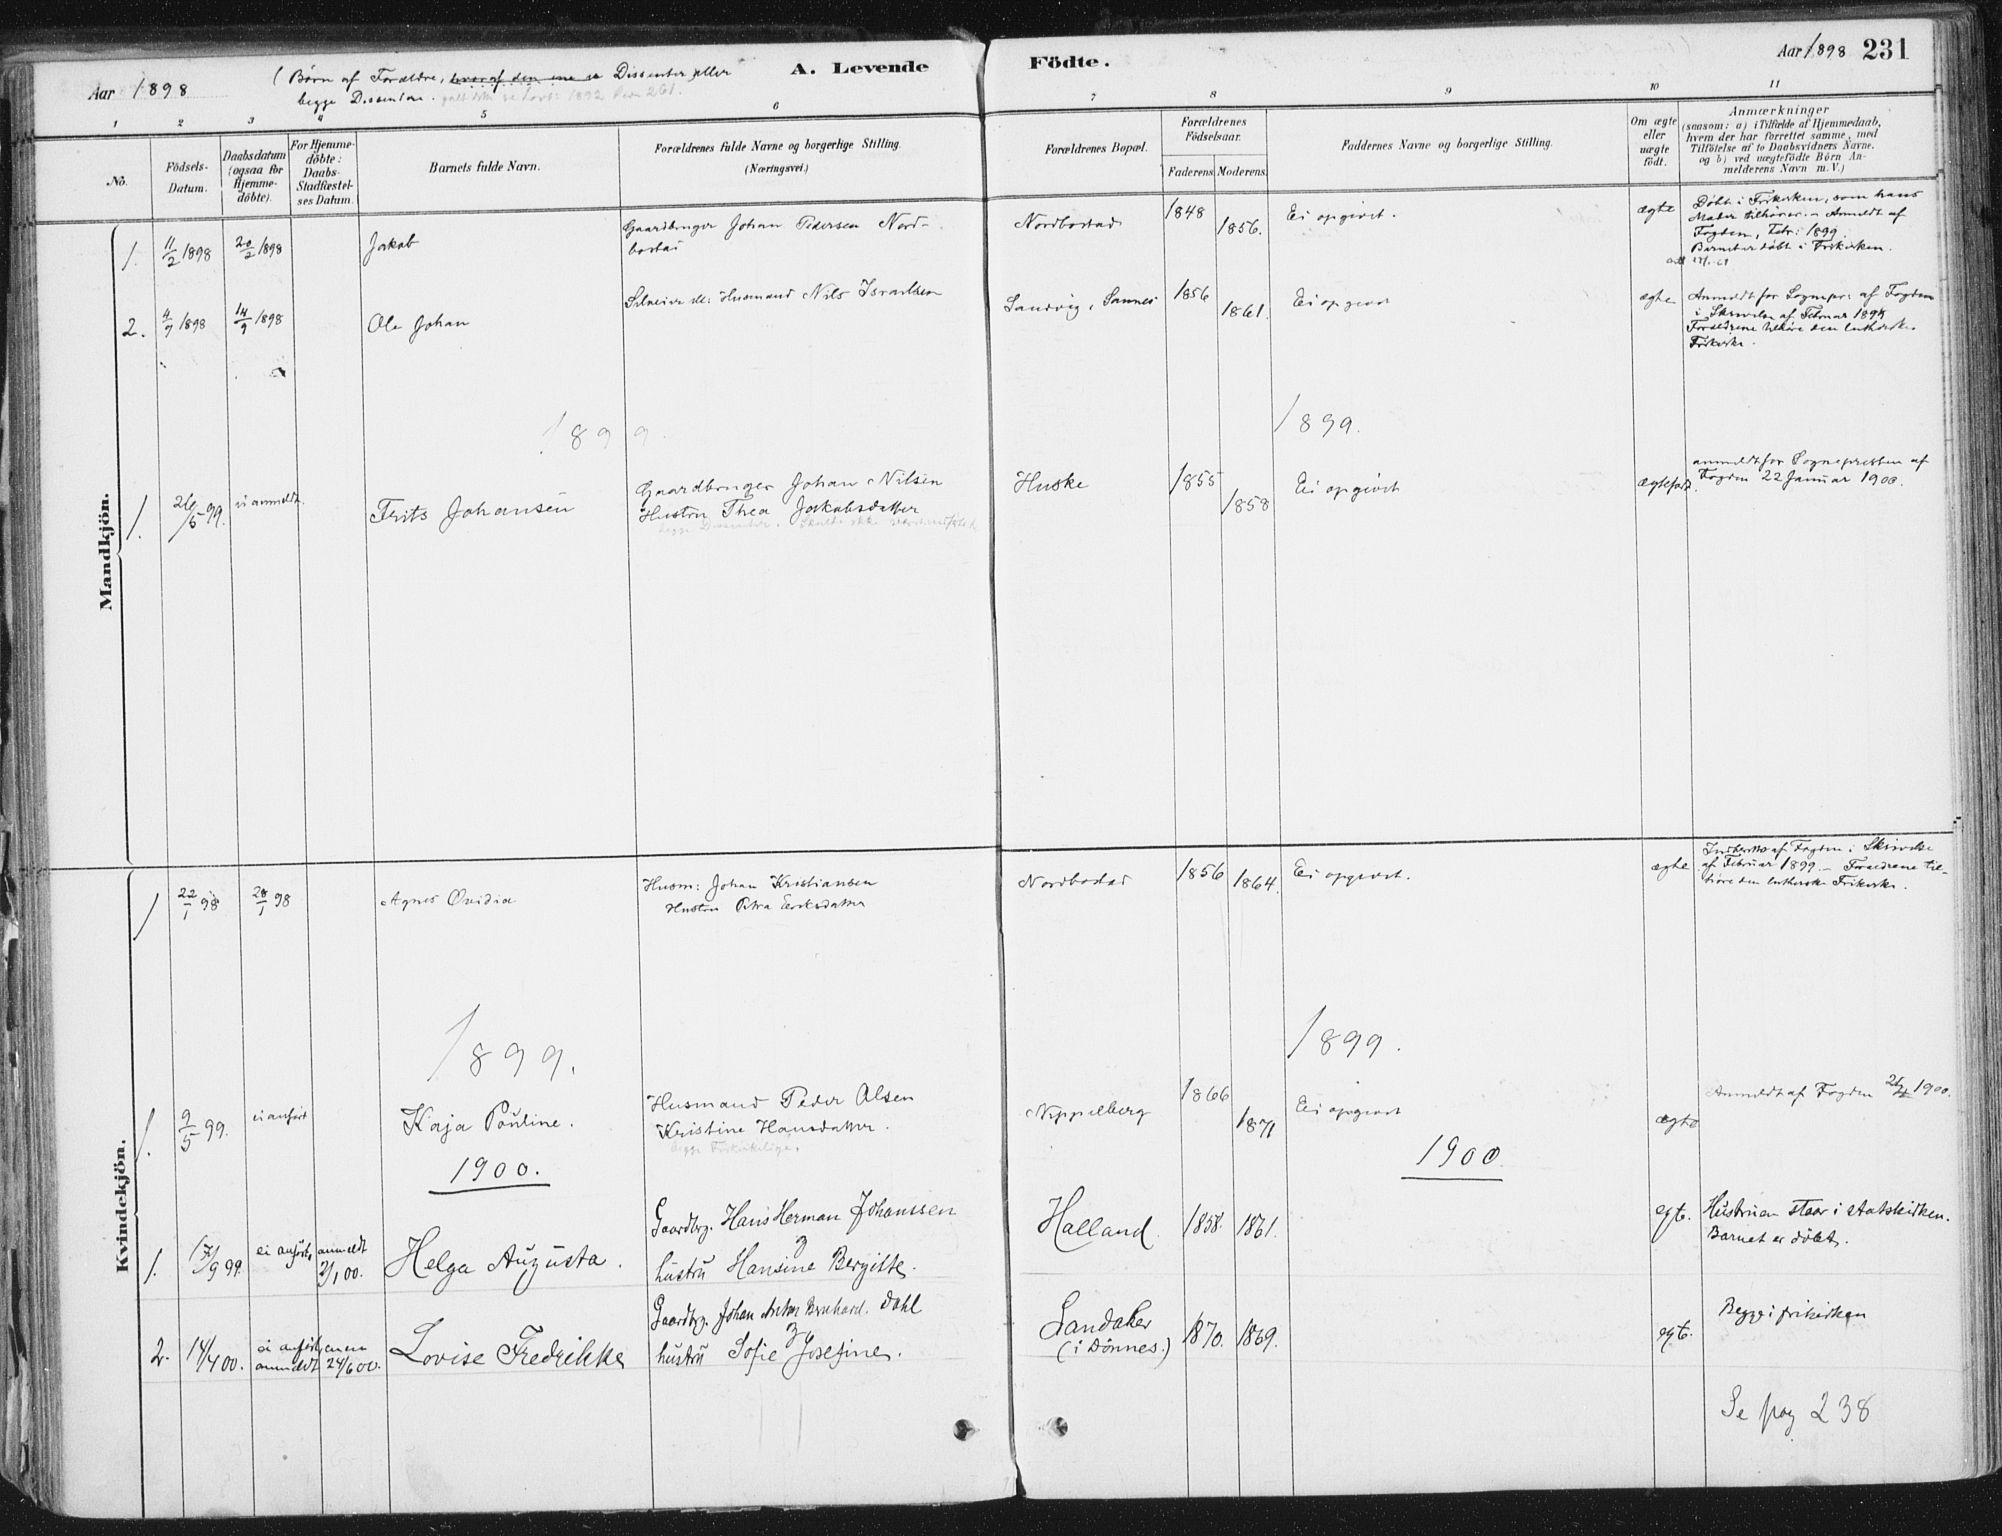 Aar 1898
( Børn af Forældre, hvoraf den ene er Dissenter eller
begge Dissentere.
A. Levende Födte.
Aar 1898 231
1 2 3 4 5 6 7 8 9 10 11
No.
Födsels-
Datum.
Daabsdatum
(ogsaa for
Hjemme-
döbte).
For Hjemme-
döbte:
Daabs-
Stadfæstel-
ses Datum.
Barnets fulde Navn.
Forældrenes fulde Navne og borgerlige Stilling.
(Næringsvei.)
Forældrenes Bopæl.
Forældrenes
Födselsaar.
Faderens Moderens
Faddernes Navne og borgerlige Stilling.
Om ægte
eller
uægte
födt.
Anmærkninger
(saasom: a) i Tilfælde af Hjemmedaab,
hvem der har forrettet samme, med
Tilföielse af to Daabsvidners Navne.
og b) ved uægtefödte Börn An-
melderens Navn m. V.)
Mandkjön.
1. 11/2 1898 20/2 1898 Jakob
Gaardbruger Johan Pedersen Nord-
bostad
Nordbostad 1848 1856. Ei opgivet. ægte
Døbt i Frikirken, som hans
Moder tilhører. – Anmeldt af
Fogden, Febr: 1899.
Barnet er døbt i Frikirken.
2. 4/9 1898 14/9 1898 Ole Johan
Husmand Nils Israelsen
Sandvig, Sannes 1856 1861. Ei opgivet ægte
Anmeldt for Sognepr: af Fogden
i Skrivelse af Februar 1899
Forældrene tilhøre den lutherske
Frikirke.
1899. 1899.
1. 26/5 99. ei anmeldt Frits Johansen
Gaardbruger Johan Nilsen
Hustru Thea Jakobsdatter
begge Dissenter.
Huske 1855 1858 Ei opgivet ægtefødt.
anmeldt for Sognepresten af
Fogden 22 Januar 1900.
Kvindekjön.
1 22/1 98 28/1 98 Agnes Ovidia
Husm: Johan Kristiansen
Hustru Petra Eriksdatter
Nordbostad 1856 1864. Ei opgivet. ægte
Indberettet af Fogden i Skrivelse
af Februar 1899 – Forældrene til-
høre den lutherske Frikirke.
1899. 1899.
1. 9/5 99. ei anført Kaja Pauline.
Husmand Peder Olsen
Kristine Hansdatter.
begge Frikirkelige.
Nippelberg 1866 1871 Ei opgivet ægte
Anmeldt af Fogden 1900.
1900. 1900.
1. 17/9 99. ei anført, anmeldt
2/1 00.
Helga Augusta.
Gaardbrg. Hans Herman Johanssen
&
hustru Hansine Bergitte.
Halland. 1858. 1861. egte.
Hustruen staar i statskirken.
Barnet er døbt.
2. 14/4 00. ei anført,
anmeldt 24/6 00.
Lovise Fredrikke
Gaardbrg. Johan Anton Bernhard. Dahl
&
hustru Sofie Josefine.
Landaker
(i Dönnes.)
1870. 1869. egte.
Begge i frikirken
Se pag 238